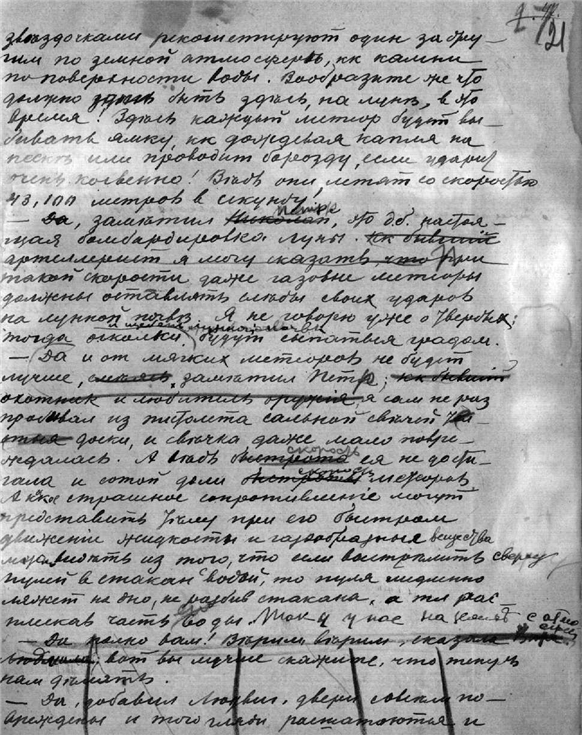 21
звѣздочками рекошетируют один за дру-
гим по земной атмосферѣ, кк камни
по поверхности воды. Вообразите же что
должно здѣсь быть здѣсь, на лунѣ, в это
время! Здѣсь каждый метеор будет вы-
бивать ямку, кк дождевая капля на
пескѣ или проводит борозду, если ударит
очень косвенно! Вѣдь они летят со скоростью
43,100 метров в секунду!
— Да, замѣтил Николай, Петр, это д.б. настоя-
щая бомбардировка луны. Кк бывший
артеллерист я могу сказать что при
такой скорости даже газовые метеоры
должны оставлять слѣды своих ударов
на лунной почвѣ. Я не говорю уже о твердых;
тогда осколки лунной почвы будут сыпаться градом.
— Да и от мягких метеоров не будет
лучше, замѣтил Петр; кк бывший
охотник и любитель оружия я сам не раз
пробивал из пистолета сальной свѣчей
доски, и свѣчка даже мало повре-
ждалась. А вѣдь быстрота скорость ея не дости-
гала и сотой доли быстроты скорость метеоров
А кое страшное сопротивленіе могут
представить тѣлу при его быстром
движеніи жидкости и газообразныя вещества
видѣть из того, что если выстрѣлить сверху
пулей в стакан с водой, то пуля медленно
ляжет на дно, не разбив стакана, а тл рас-
плескав часть воды.
— Да полно вам! Вѣрим вѣрим, сказала
вот вы лучше скажите, что теперь
нам дѣлать.
— Да, добавил Людвиг, двери совсѣм по-
вреждены и того гляди расшатаются и